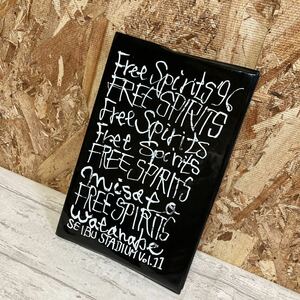 Free Spirits 96
FREE SPIRITS
Free Spirits
Free Spirits
FREE SPIRITS
misato
FREE SPIRITS
watanabe
SEIBU STADIUM Vol.11